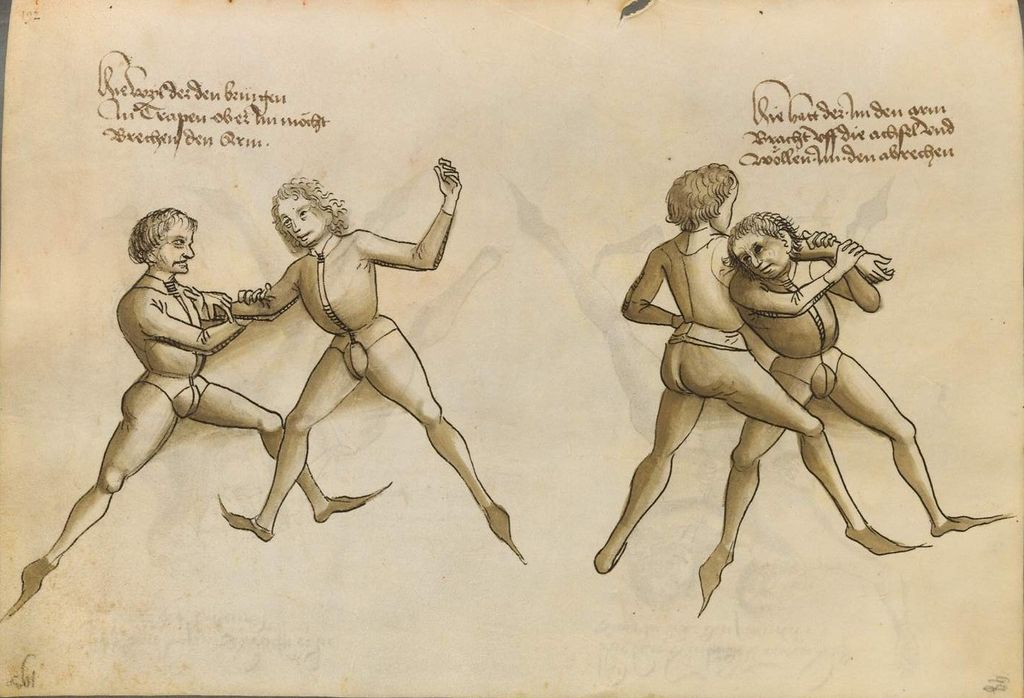 Hie
der den
In Trapen ober Im möcht
Brechen den Arm.
Hie hatt der Im den arm
Bracht vff die achsel vnd
Wöllen Im den abrechen